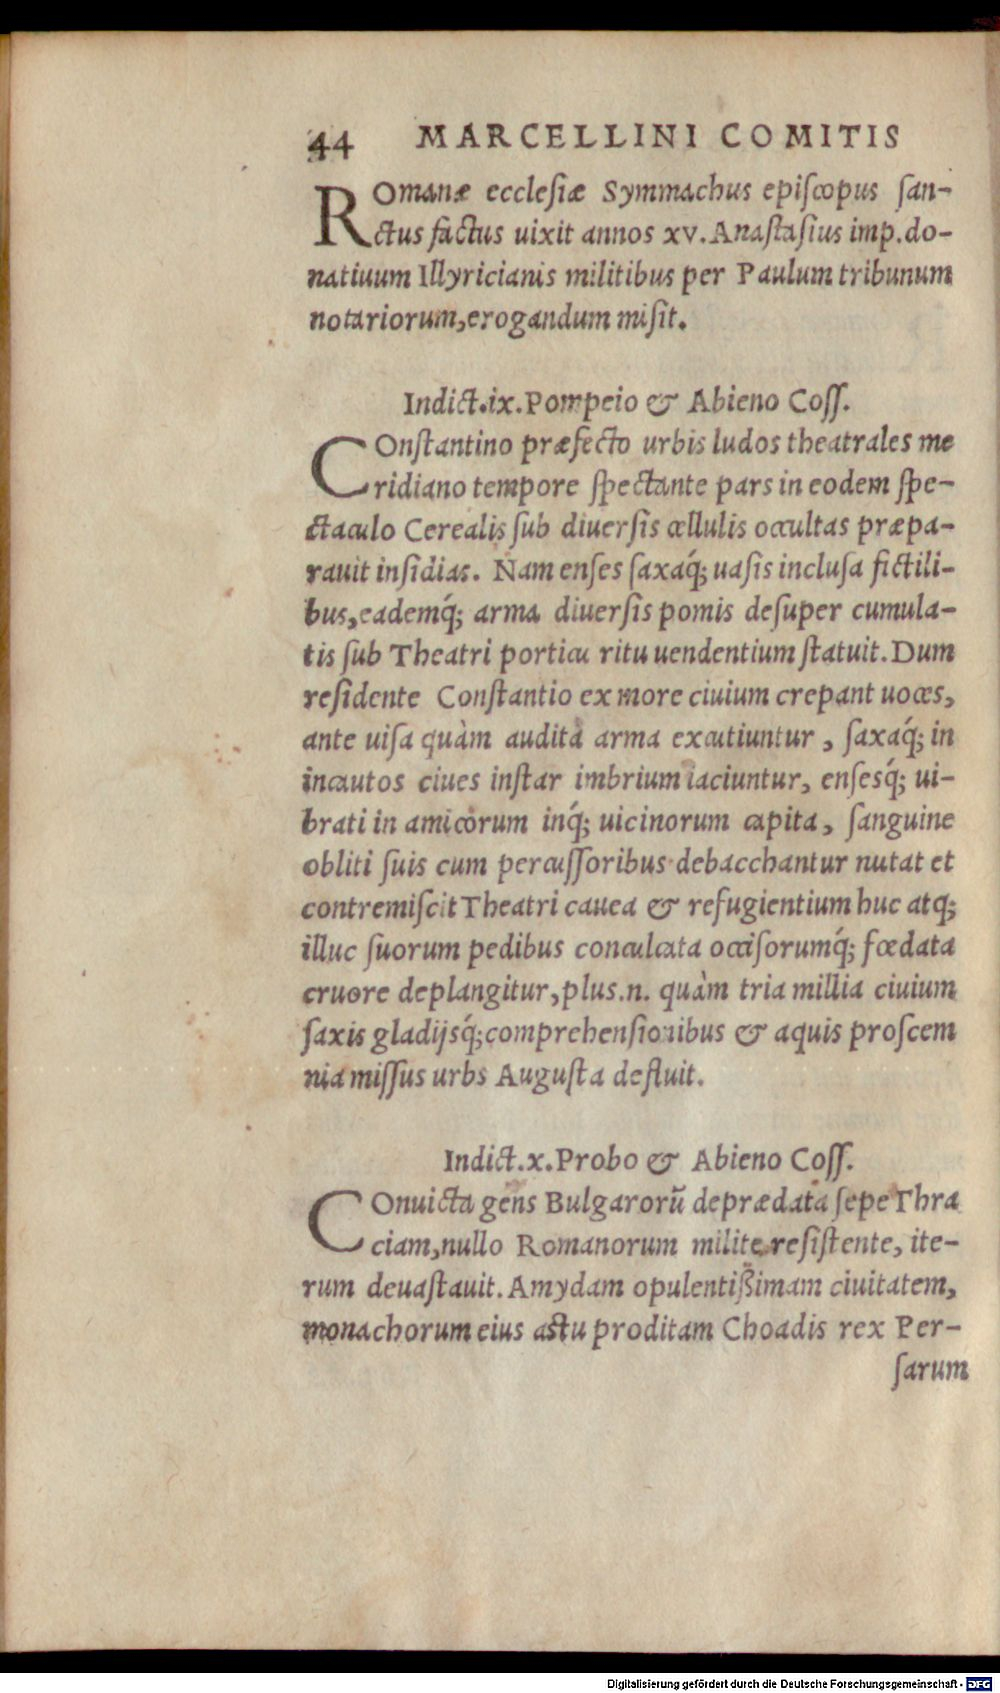 44 MARCELLINI COMITIS
ROmanæ ecclesiæ Symmachus episcopus san-
ctus factus uixit annos xv. Anastasius imp. do-
natiuum Illyricianis militibus per Paulum tribunum
notariorum, erogandum misit.
Indict. ix. Pompeio & Abieno Coss.
COnstantino præfecto urbis ludos theatrales me
ridiano tempore spectante pars in eodem spe-
ctaculo Cerealis sub diuersis cellulis occultas præpa-
rauit insidias. Nam enses saxaq́; uasis inclusa fictili-
bus, eademq́; arma diuersis pomis desuper cumula-
tis sub Theatri porticu ritu uendentium statuit. Dum
residente Constantio ex more ciuium crepant uoces,
ante uisa quàm audita arma excutiuntur, saxaq́; in
incautos ciues instar imbrium iaciuntur, ensesq́; ui-
brati in amicorum inq́; uicinorum capita, sanguine
obliti suis cum percussoribus debacchantur nutat et
contremiscit Theatri cauea & refugientium huc atq;
illuc suorum pedibus conculcata occisorumq́; fœdata
cruore deplangitur, plus .n. quàm tria millia ciuium
saxis gladijsq́; comprehensionibus & aquis proscem
nia missus urbs Augusta defluit.
Indict. x. Probo & Abieno Coss.
COnuicta gens Bulgarorū deprædata sepe Thra
ciam, nullo Romanorum milite resistente, ite-
rum deuastauit. Amydam opulentißimam ciuitatem,
monachorum eius astu proditam Choadis rex Per-
sarum
Digitalisierung gefördert durch die Deutsche Forschungsgemeinschaft - DFG